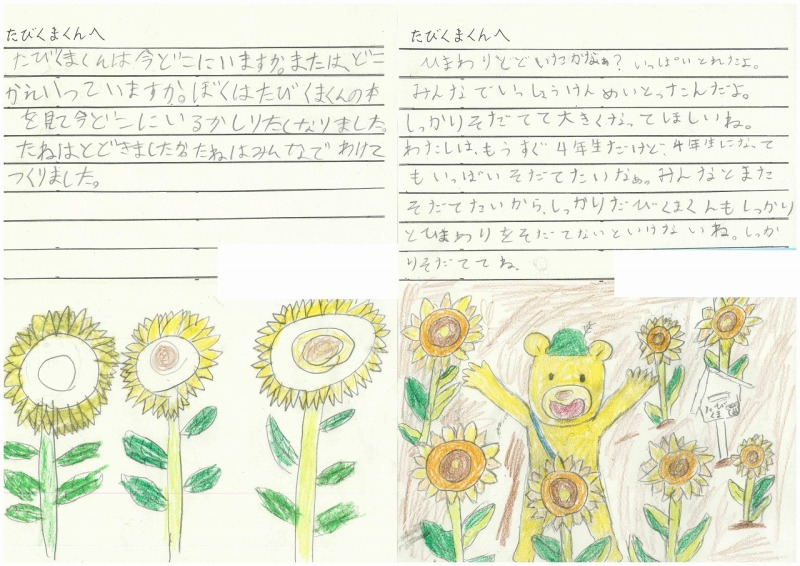 たびくまくんへ
たびくまくんは今どこにいますか。または、どこ
かえいっていますか。ぼくはたびくまくんの本
を見て今どこにいるかしりたくなりました。
たねはとどきましたかたねはみんなでわけて
つくりました。
たびくまくんへ
ひまわりとどいたかなぁ?いっぱいとれたよ。
みんなでいっしょうけんめいとったんだよ。
しっかりそだてて大きくなってほしいね。
わたしは、もうすぐ4年生だけど、4年生になって
もいっぱいそだてたいなぁ。みんなとまた
そだてたいから、しっかりたびくまくんもしっかり
とひまわりをそだてないといけないね。しっか
りそだててね。
たび
くま